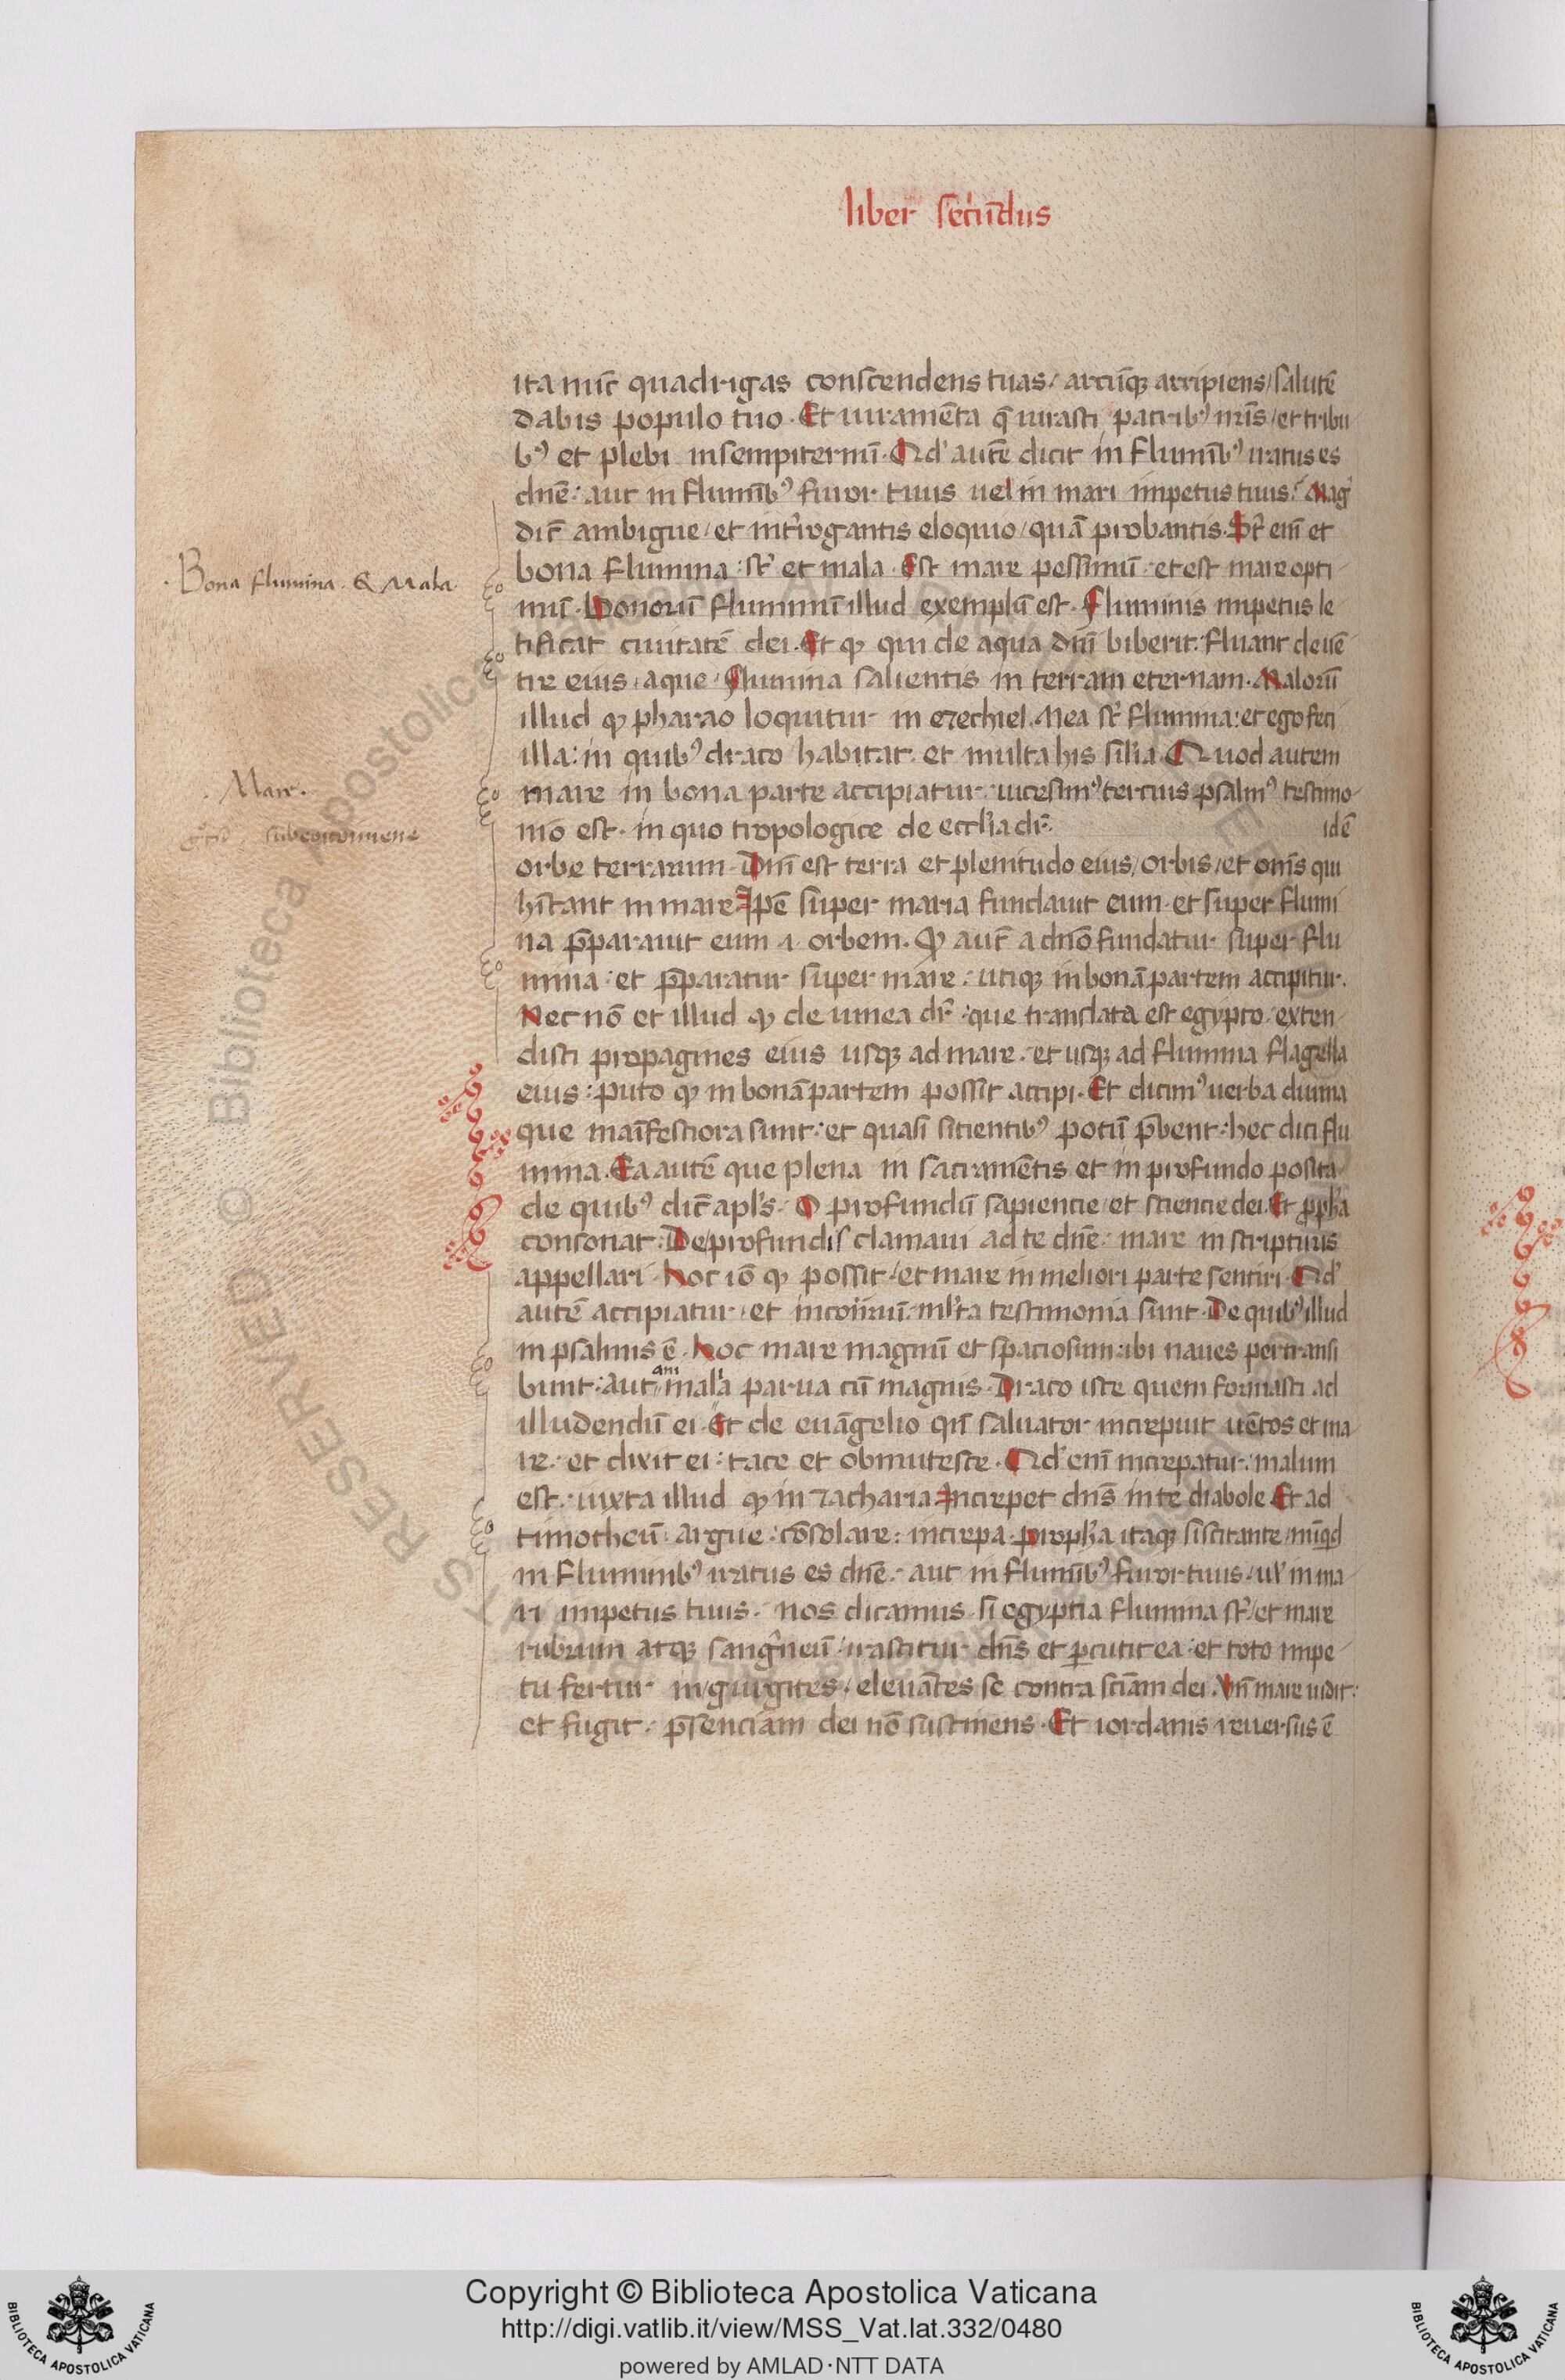 liber secūdus
ita nūc quadrigas conscendens tuas / arcūq; arripiens / salutē
dabis populo tuo . Et iuramēta q̄ iurasti patribꝰ nr̄is / et tribu
bꝰ et plebi insempiternū . Qd' autē dicit in fluminībꝰ iratus es
dn̄e : aut in fluminībꝰ furor tuus uel in mari impetus tuus : Mag'
dic̄ ambigue / et int'rogantis eloquio / quā probantis . St̄ eni et
Bona flumina . & Mala
bona flumina : st̄ et mala . Est mare pessimū . et est mare opti
mū . Bonorū fluminū illud exemplū est . Fluminis impetus le
tificat ciuitatē dei . Et qꝫ qui de aqua dn̄i biberit : fluant de uē
tre eius aque / flumina salientis in terram eternam . Malorū
illud qꝫ pharao loquitur in ezechiel . Mea st̄ flumina : et ego feci
illa : in quibꝰ draco habitat . et multa his sil'ia . Quod autem
Mare .
mare in bona parte accipiatur . uicesimꝰ tercius psalmꝰ testimo
nio est . in quo tropologice de eccl'ia dr̄ . idē
orbe terrarum . Dn̄i est terra et plenitudo eius / orbis / et om̄s qui
hītant in mare Ip̄e super maria fundauit eum . et super flumi
na p̄parauit eum .i. orbem . Qꝫ aut̄ a dn̄o fundatur super flu
mina : et p̄paratur super mare . utiqꝫ in bonā partem accipitur .
Nec nō et illud qꝫ de uinea dr̄ : que translata est egypto / exten
disti propagines eius usqꝫ ad mare . et usqꝫ ad flumina flagella
eius : puto qꝫ in bonā partem possit accipi . Et dicimꝰ uerba diuina
que māifestiora sunt : et quasi sitientibꝰ potū p̄bent : hec dici flu
mina . Ea autē que plena in sacramētis et in profundo posita
de quibꝰ dic̄ apl's . O profundū sapientie / et scientie dei . Et ꝓph'a
consonat : De profundis clamaui ad te dn̄e : mare in scripturis
appellari . hoc iō qꝫ possit / et mare in meliori parte sentiri . Qd'
autē accipiatur / et in cōtrariū . ml'ta testimonia sunt . De quibꝰ illud
in psalmis ē . hoc mare magnū et spaciosum : ibi naues pertransi
bunt : aut ani mal'a parua cū magnis . Draco iste quem formasti ad
illudendū ei . Et de euāgelio qn̄ saluator increpuit uētos et ma
re . et dixit ei : tace et obmutesce . Qd' eni increpatur . malum
est . iuxta illud qꝫ in zacharia Increpet dn̄s in te diabole Et ad
timotheū argue : cōsolare : increpa . proph'a itaqꝫ siscitante / nūqd
in fluminibꝰ iratus es dn̄e . aut in fluminībꝰ furor tuus . ul' in ma
ri impetus tuus . nos dicamus . si egyptia flumina st̄ / et mare
rubrum atqꝫ sang'neū / irascitur dn̄s et ꝑcutit ea : et toto impe
tu fertur in gurgites / eleuātes se contra sciam dei . Vn̄ mare uidit :
et fugit . p̄senciam dei nō sustinens . Et iordanis reuersus ē
Copyright © Biblioteca Apostolica Vaticana
http://digi.vatlib.it/view/MSS_Vat.lat.332/0480
powered by AMLAD·NTT DATA
BIBLIOTECA APOSTOLICA VATICANA
BIBLIOTECA APOSTOLICA VATICANA